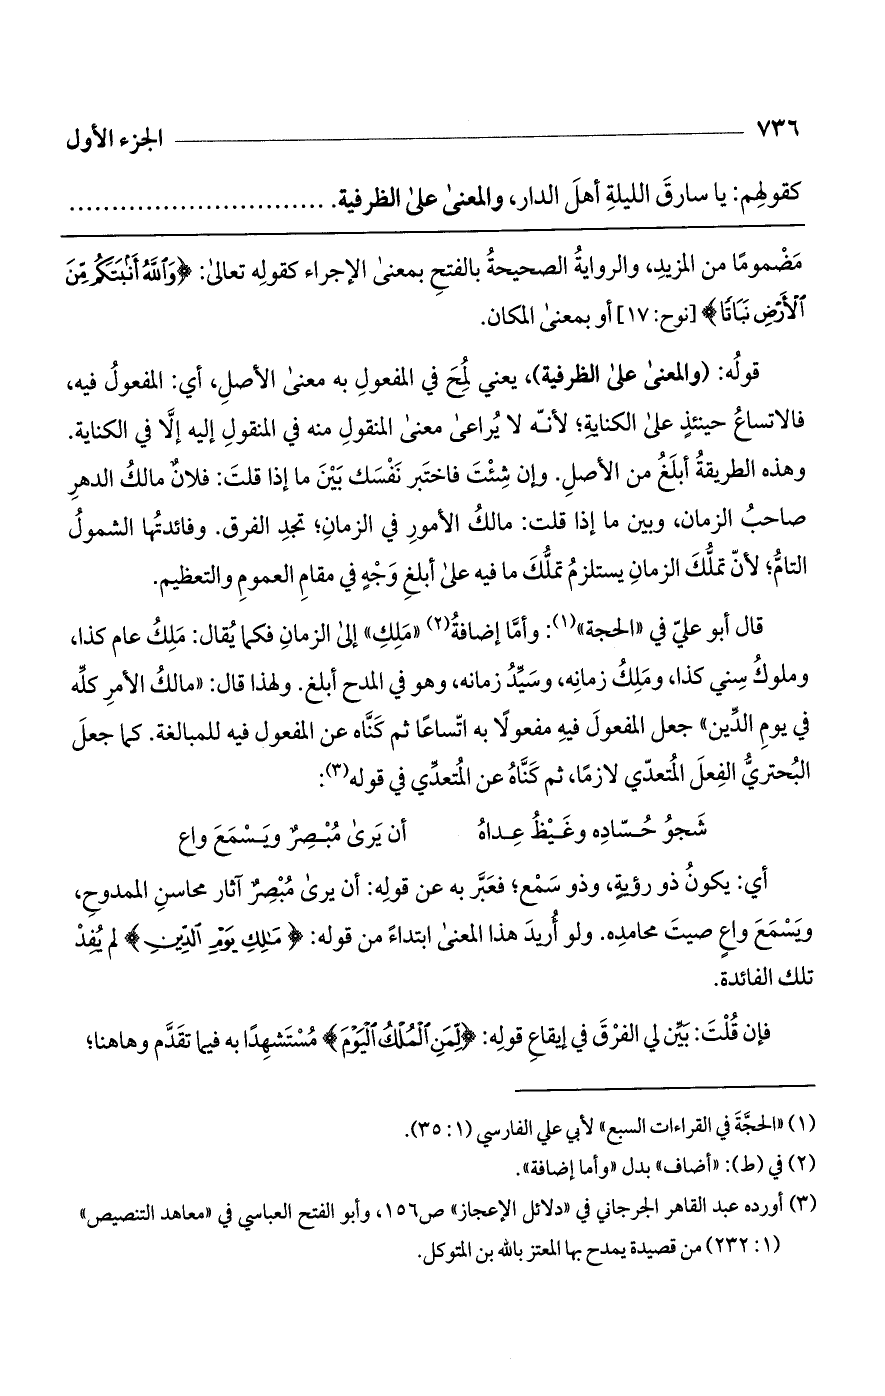 ٧٣٦ ــــــــــــــــــــ الجزء الأول
كقولِهم: يا سارقَ الليلةِ أهلَ الدار، والمعنىٰ علىٰ الظرفية. ..............................
مَضْمومًا من المزيدِ، والروايةُ الصحيحةُ بالفتحِ بمعنىٰ الإجراء كقولِه تعالىٰ: ﴿وَٱللَّهُ أَنۢبَتَكُم مِّنَ
ٱلْأَرْضِ نَبَاتًا﴾ [نوح: ١٧] أو بمعنىٰ المكان.
قولُه: (والمعنىٰ علىٰ الظرفية)، يعني لُمِحَ في المفعولِ به معنىٰ الأصلِ، أي: المفعولُ فيه،
فالاتساعُ حينئذٍ علىٰ الكنايةِ؛ لأنّه لا يُراعىٰ معنىٰ المنقولِ منه في المنقولِ إليه إلَّا في الكناية.
وهذه الطريقةُ أبلَغُ من الأصلِ. وإن شِئْتَ فاختَبِر نَفْسَك بَيْنَ ما إذا قلتَ: فلانٌ مالكُ الدهرِ
صاحبُ الزمان، وبين ما إذا قلت: مالكُ الأمورِ في الزمانِ؛ تجدِ الفرق. وفائدتُها الشمولُ
التامُّ؛ لأنّ تملُّكَ الزمانِ يستلزمُ تملُّكَ ما فيه علىٰ أبلغِ وَجْهٍ في مقامِ العمومِ والتعظيم.
قال أبو عليّ في «الحجة»(١): وأمَّا إضافةُ(٢) «مَلِكِ» إلىٰ الزمانِ فكما يُقال: مَلِكُ عام كذا،
وملوكُ سِني كذا، ومَلِكُ زمانِه، وسَيِّدُ زمانه، وهو في المدح أبلغ. ولهذا قال: «مالكُ الأمرِ كلِّه
في يومِ الدِّين» جعل المفعولَ فيهِ مفعولًا به اتّساعًا ثم كَنَّاه عن المفعول فيه للمبالغة. كما جعلَ
البُحتريُّ الفِعلَ المُتعدّي لازمًا، ثم كَنَّاهُ عن المُتعدِّي في قوله(٣):
شَجوُ حُسّادِه وغَيْظُ عِداهُ أن يَرىٰ مُبْصِرٌ ويَسْمَعَ واع
أي: يكونُ ذو رؤيةٍ، وذو سَمْع؛ فعَبَّر به عن قولِه: أن يرىٰ مُبْصِرٌ آثار محاسنِ الممدوحِ،
ويَسْمَعَ واعٍ صيتَ محامدِه. ولو أُريدَ هذا المعنىٰ ابتداءً من قوله: ﴿مَـٰلِكِ يَوْمِ ٱلدِّينِ﴾ لم يُفِدْ
تلك الفائدة.
فإن قُلْتَ: بَيِّن لي الفرْقَ في إيقاعِ قولِه: ﴿لِّمَنِ ٱلْمُلْكُ ٱلْيَوْمَ﴾ مُسْتَشهِدًا به فيما تقَدَّم وهاهنا؛
(١) «الحجَّةَ في القراءات السبع» لأبي علي الفارسي (١: ٣٥).
(٢) في (ط): «أضاف» بدل «وأما إضافة».
(٣) أورده عبد القاهر الجرجاني في «دلائل الإعجاز» ص١٥٦، وأبو الفتح العباسي في «معاهد التنصيص»
(١: ٢٣٢) من قصيدة يمدح بها المعتز بالله بن المتوكل.